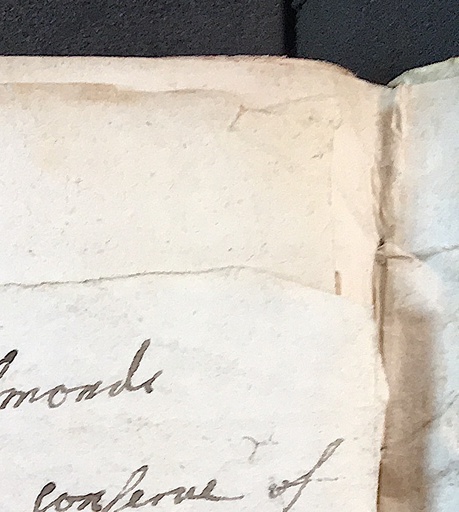 lmonds
conserue of